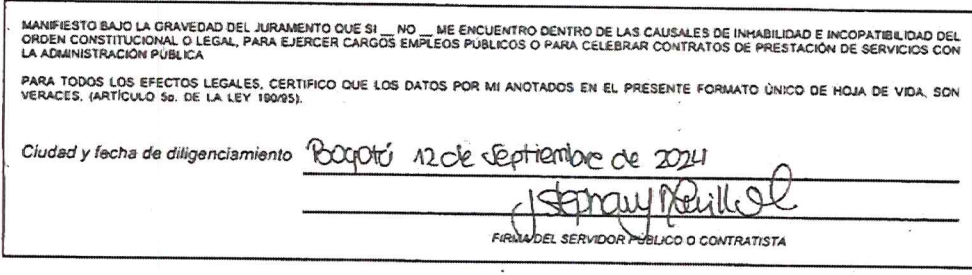 MANIFIESTO BAJO LA GRAVEDAD DEL JURAMENTO QUE SI __ NO __ ME ENCUENTRO DENTRO DE LAS CAUSALES DE INHABILIDAD E INCOPATIBILIDAD DEL
ORDEN CONSTITUCIONAL O LEGAL, PARA EJERCER CARGOS EMPLEOS PÚBLICOS O PARA CELEBRAR CONTRATOS DE PRESTACIÓN DE SERVICIOS CON
LA ADMINISTRACIÓN PÚBLICA
PARA TODOS LOS EFECTOS LEGALES, CERTIFICO QUE LOS DATOS POR MI ANOTADOS EN EL PRESENTE FORMATO ÚNICO DE HOJA DE VIDA, SON
VERACES, (ARTÍCULO 5o. DE LA LEY 190/95).
Ciudad y fecha de diligenciamiento Bogotá 12 de septiembre de 2024
FIRMA DEL SERVIDOR PÚBLICO O CONTRATISTA